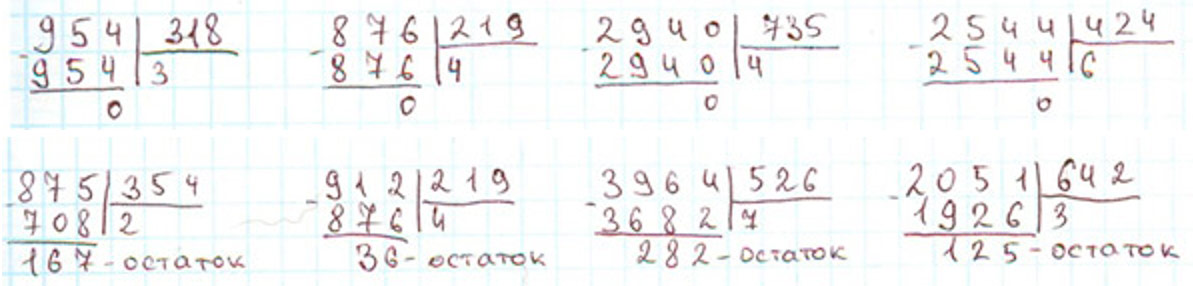 954 318 876 219 2940 735 2544 424
-954 3 -876 4 -2940 4 -2544 6
0 0 0 0
875 354 912 219 3964 526 2051 642
-708 2 -876 4 -3682 7 -1926 3
167 - остаток 36 - остаток 282 - остаток 125 - остаток